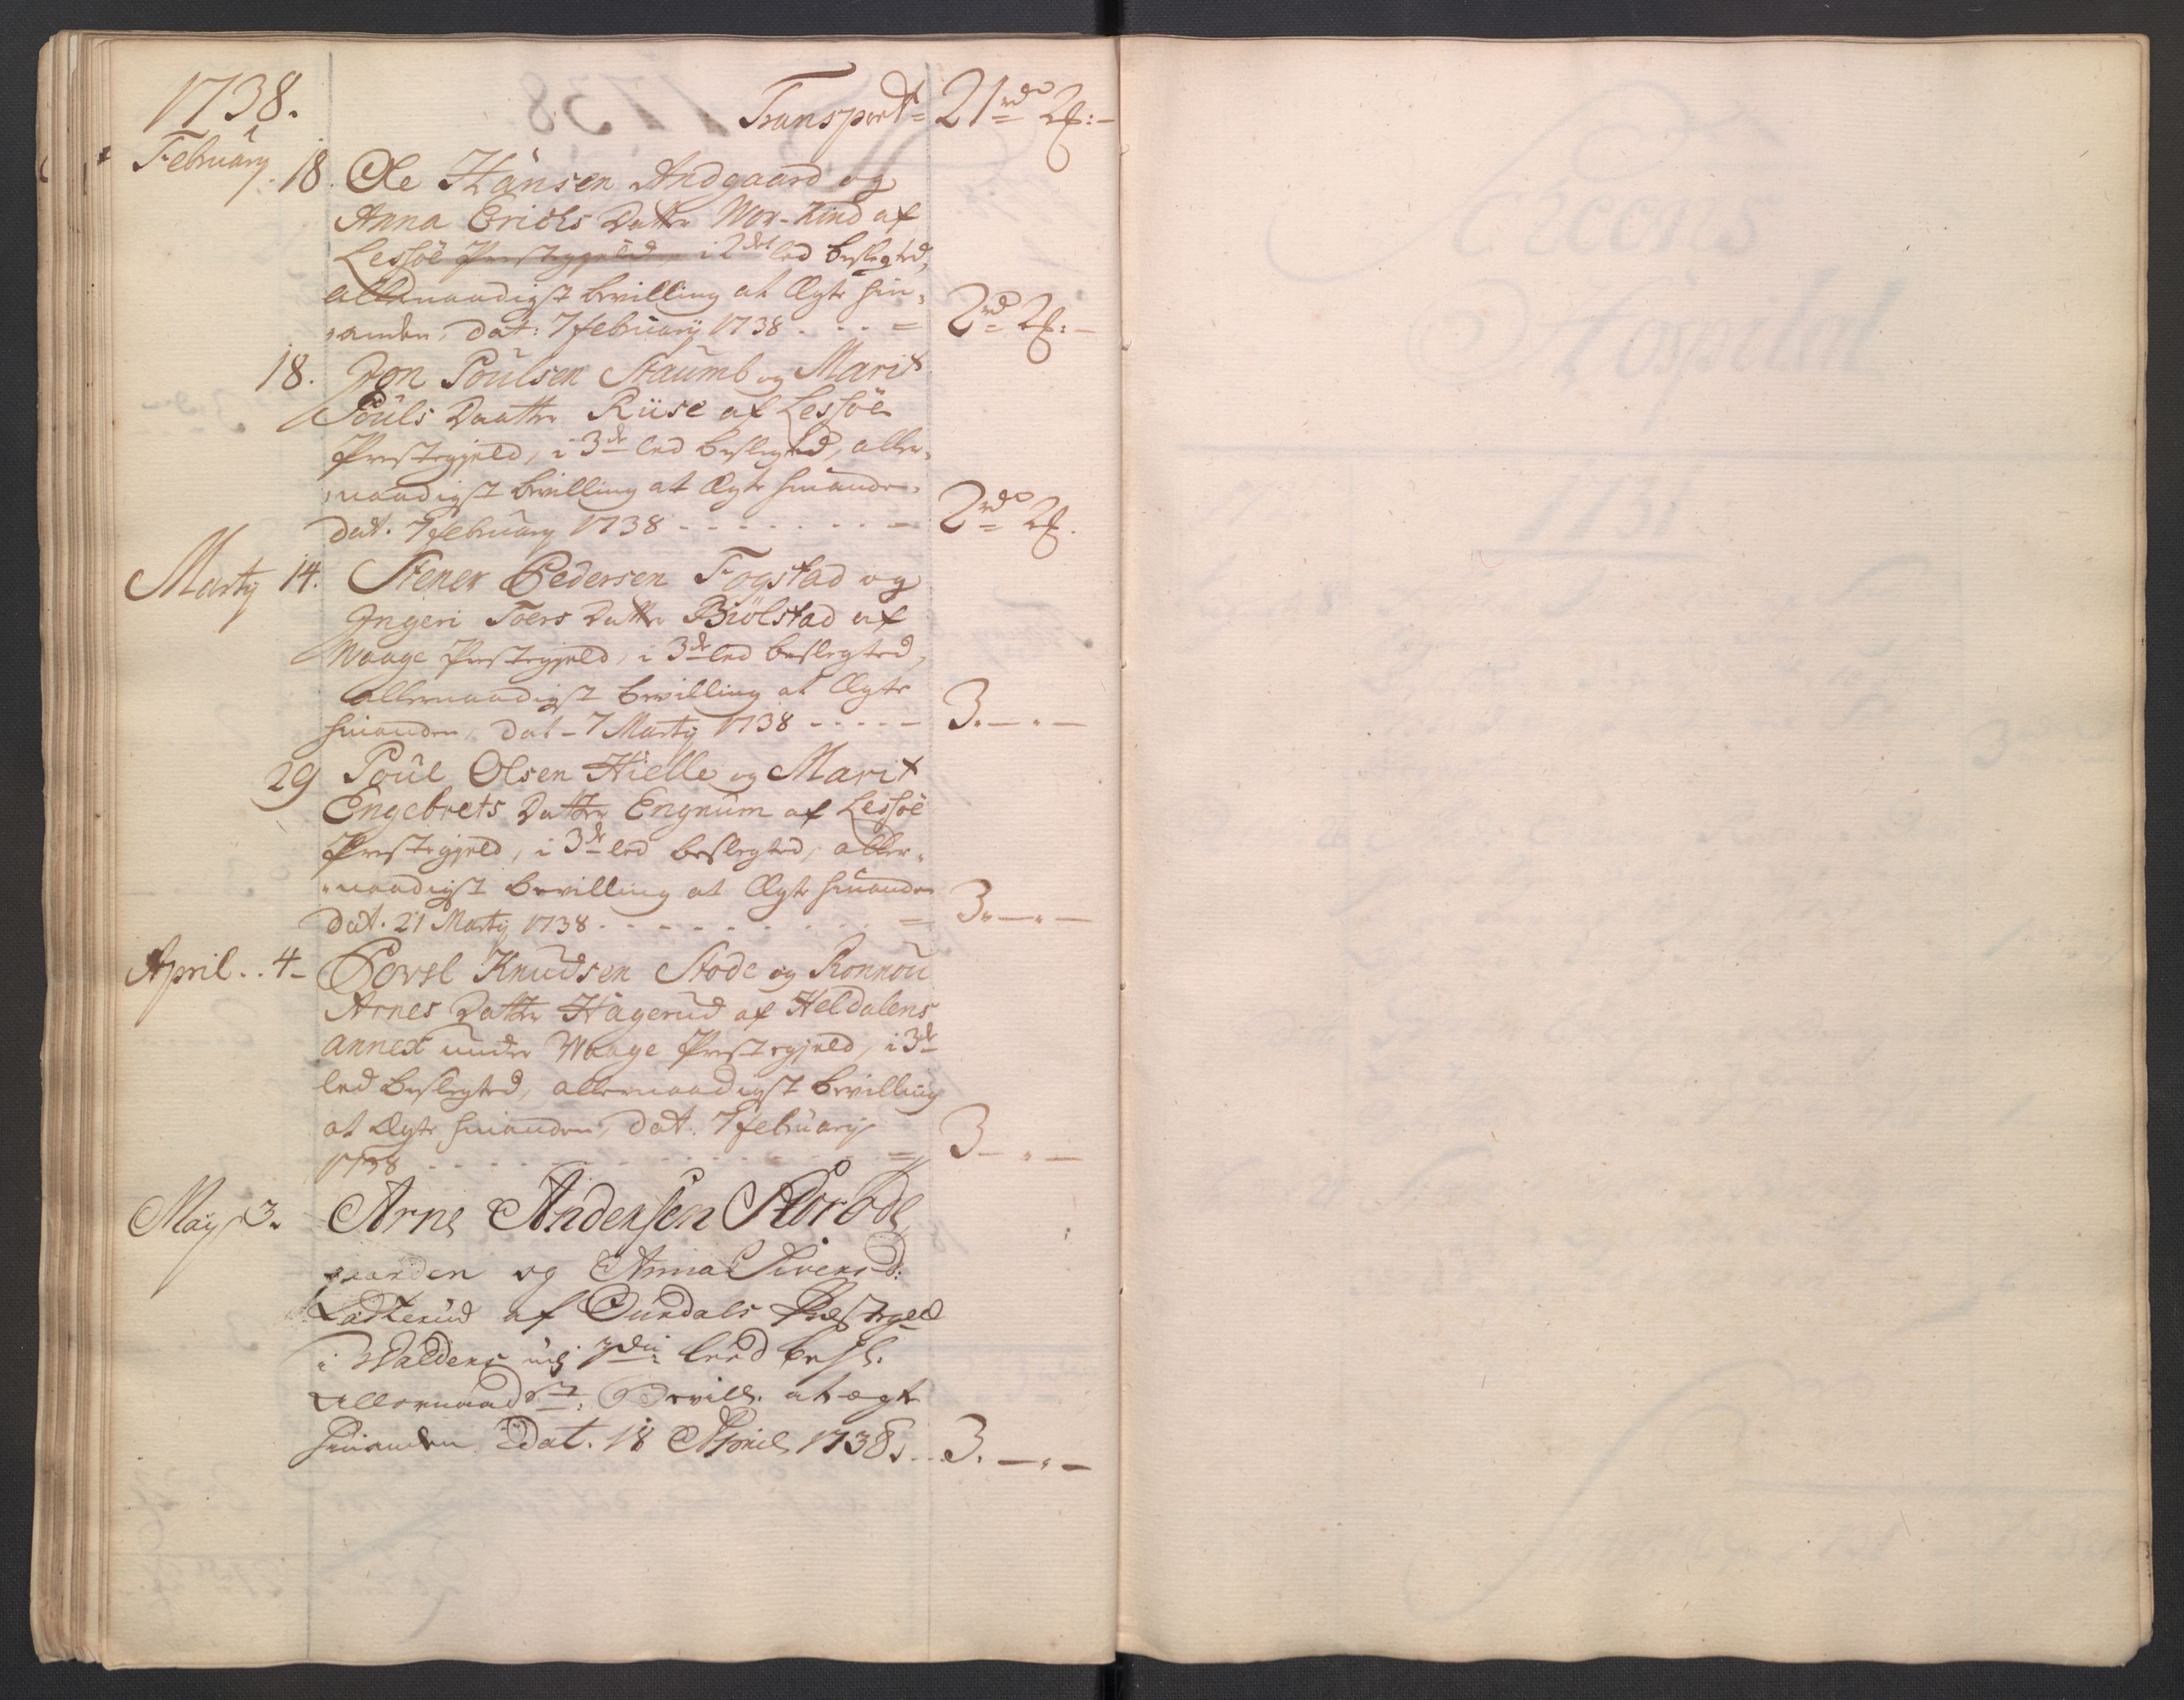 1738.
Transport = 21 rd 2 ß: -
February 18. Ole Hansen Andgaard og
Anna Erichs Datter Wor-Kind af
Lessöe Prestegjeld i 2det led beslegted,
allernaadigst bevilling at Ægte hin-
anden, dat: 7 february 1738 . . . = 2 rd 2 ß: -
18. Jon Poulsen Staumb og Marit
Pouls Daatter Riise af Lessöe
Prestegjeld, i 3de led beslegted, aller-
naadigst bevilling at Ægte hinanden.
dat. 7 february 1738 - - - - - - - 2 rd 2 ß.
Martÿ 14. Stener Pedersen Fogstad og
Ingeri Toers Datter Biölstad af
Waage Prestegjeld, i 3de led beslegted,
allernaadigst bevilling at Ægte
hinanden, dat - 7 Martÿ 1738 - - - - - 3. - . -
29 Poul Olsen Hielle og Marit
Engebrets Datter Engnum af Lessöe
Prestegjeld, i 3de led beslegted, aller-
naadigst bevilling at Ægte hinanden
dat. 21 Martÿ 1738 . - - - - - - . = 3. - . -
April . . 4 - Povel Knudsen Stode og Ronnou
Arnes Datter Hagerud af Heldalens
annex under Waage Prestegjeld, i 3de
led beslegted, allernaadigst bevilling
at Ægte hinanden, dat. 7 february
1738 - - - - - - - - = 3 - . -
Maÿ 3. Arne Andersen
gaarden og Anna Sivers d:
af Ourdals Præstegeld
i Walders udj 3die leed besl.
allernaadst: Bevill. at ægte
hinanden dat. 18 April 1738. . . 3. - . -
Hospital
173